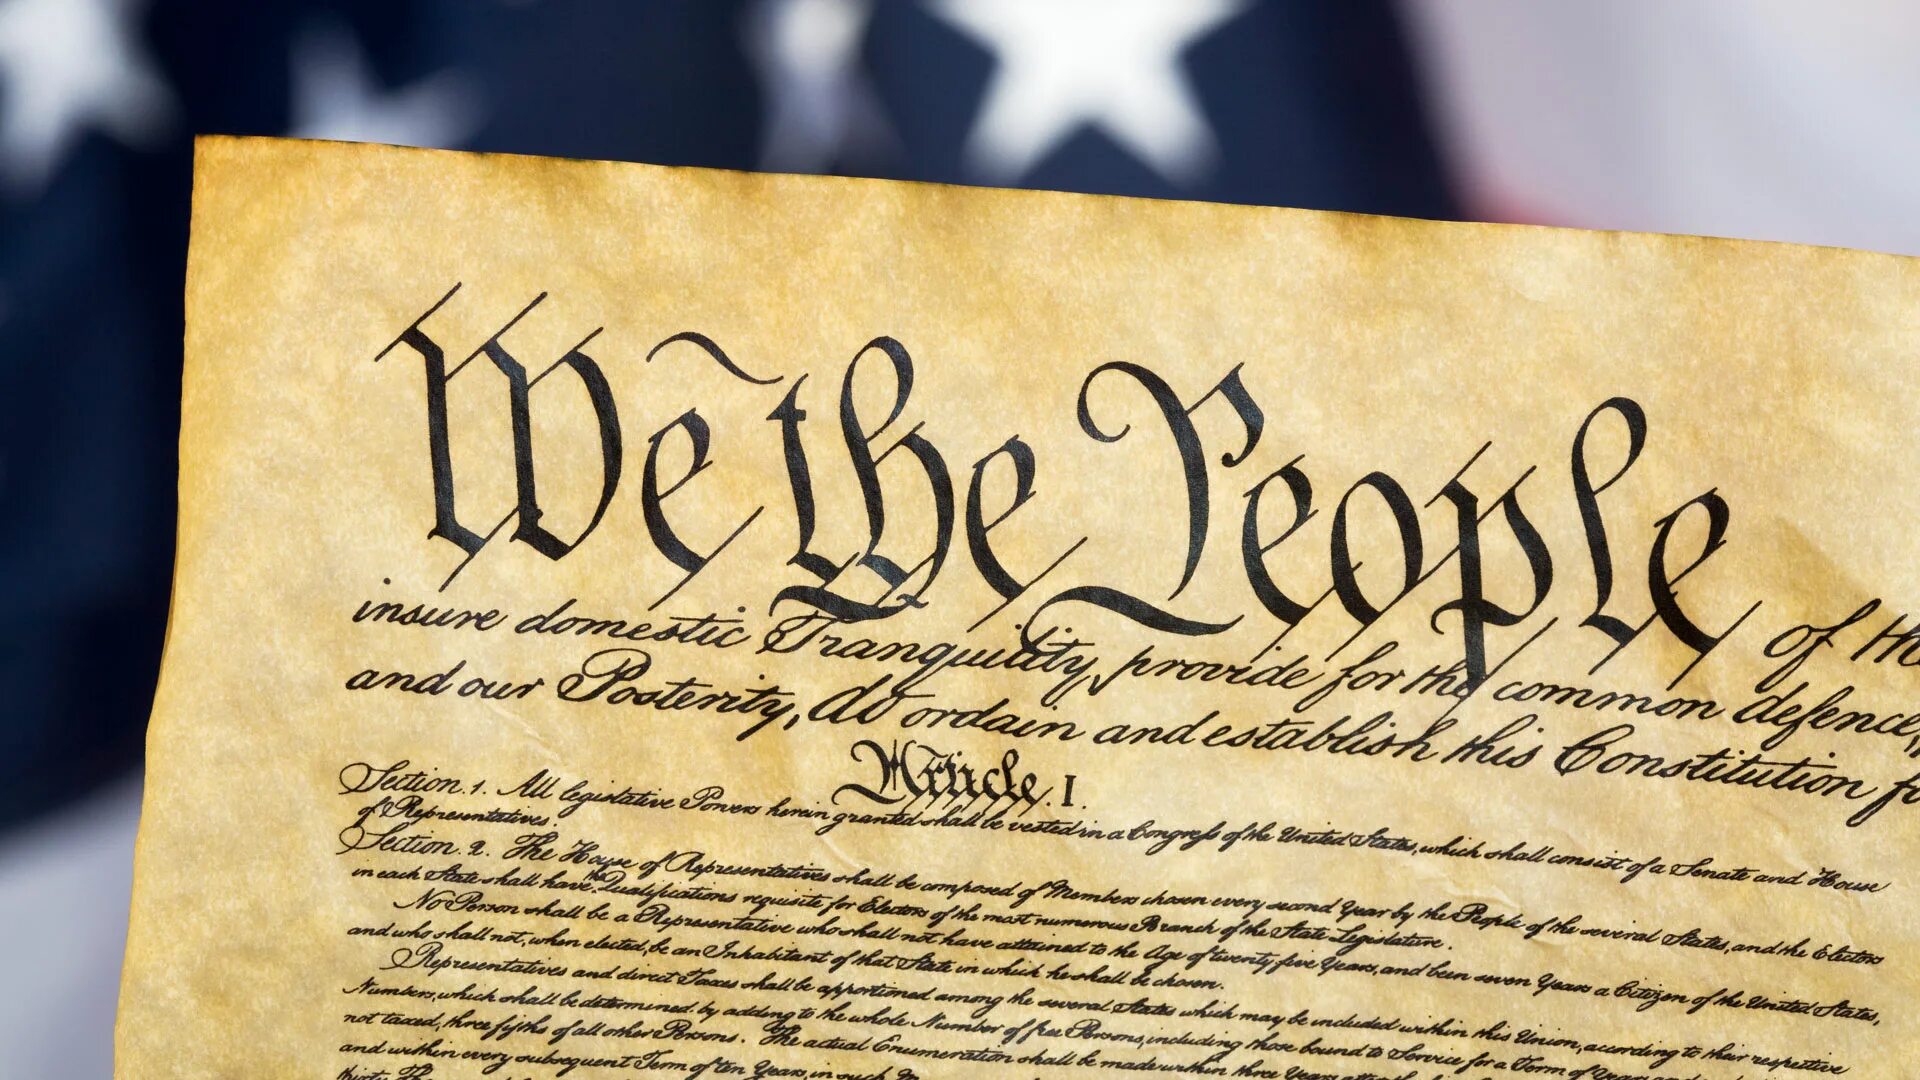 We the People of the
insure domestic Tranquility, provide for the common defence,
and our Posterity, do ordain and establish this Constitution fo
Article. I.
Section. 1. All legislative Powers herein granted shall be vested in a Congress of the United States, which shall consist of a Senate and House
of Representatives.
Section. 2. The House of Representatives shall be composed of Members chosen every second Year by the People of the several States, and the Electors
in each State shall have the Qualifications requisite for Electors of the most numerous Branch of the State Legislature.
No Person shall be a Representative who shall not have attained to the Age of twenty five Years, and been seven Years a Citizen of the United States,
and who shall not, when elected, be an Inhabitant of that State in which he shall be chosen.
Representatives and direct Taxes shall be apportioned among the several States which may be included within this Union, according to their respective
Numbers, which shall be determined by adding to the whole Number of free Persons, including those bound to Service for a Term of Years
not taxed, three fifths of all other Persons. The actual Enumeration shall be made within three Years
and within every subsequent Term of ten Years, in such
thirty The